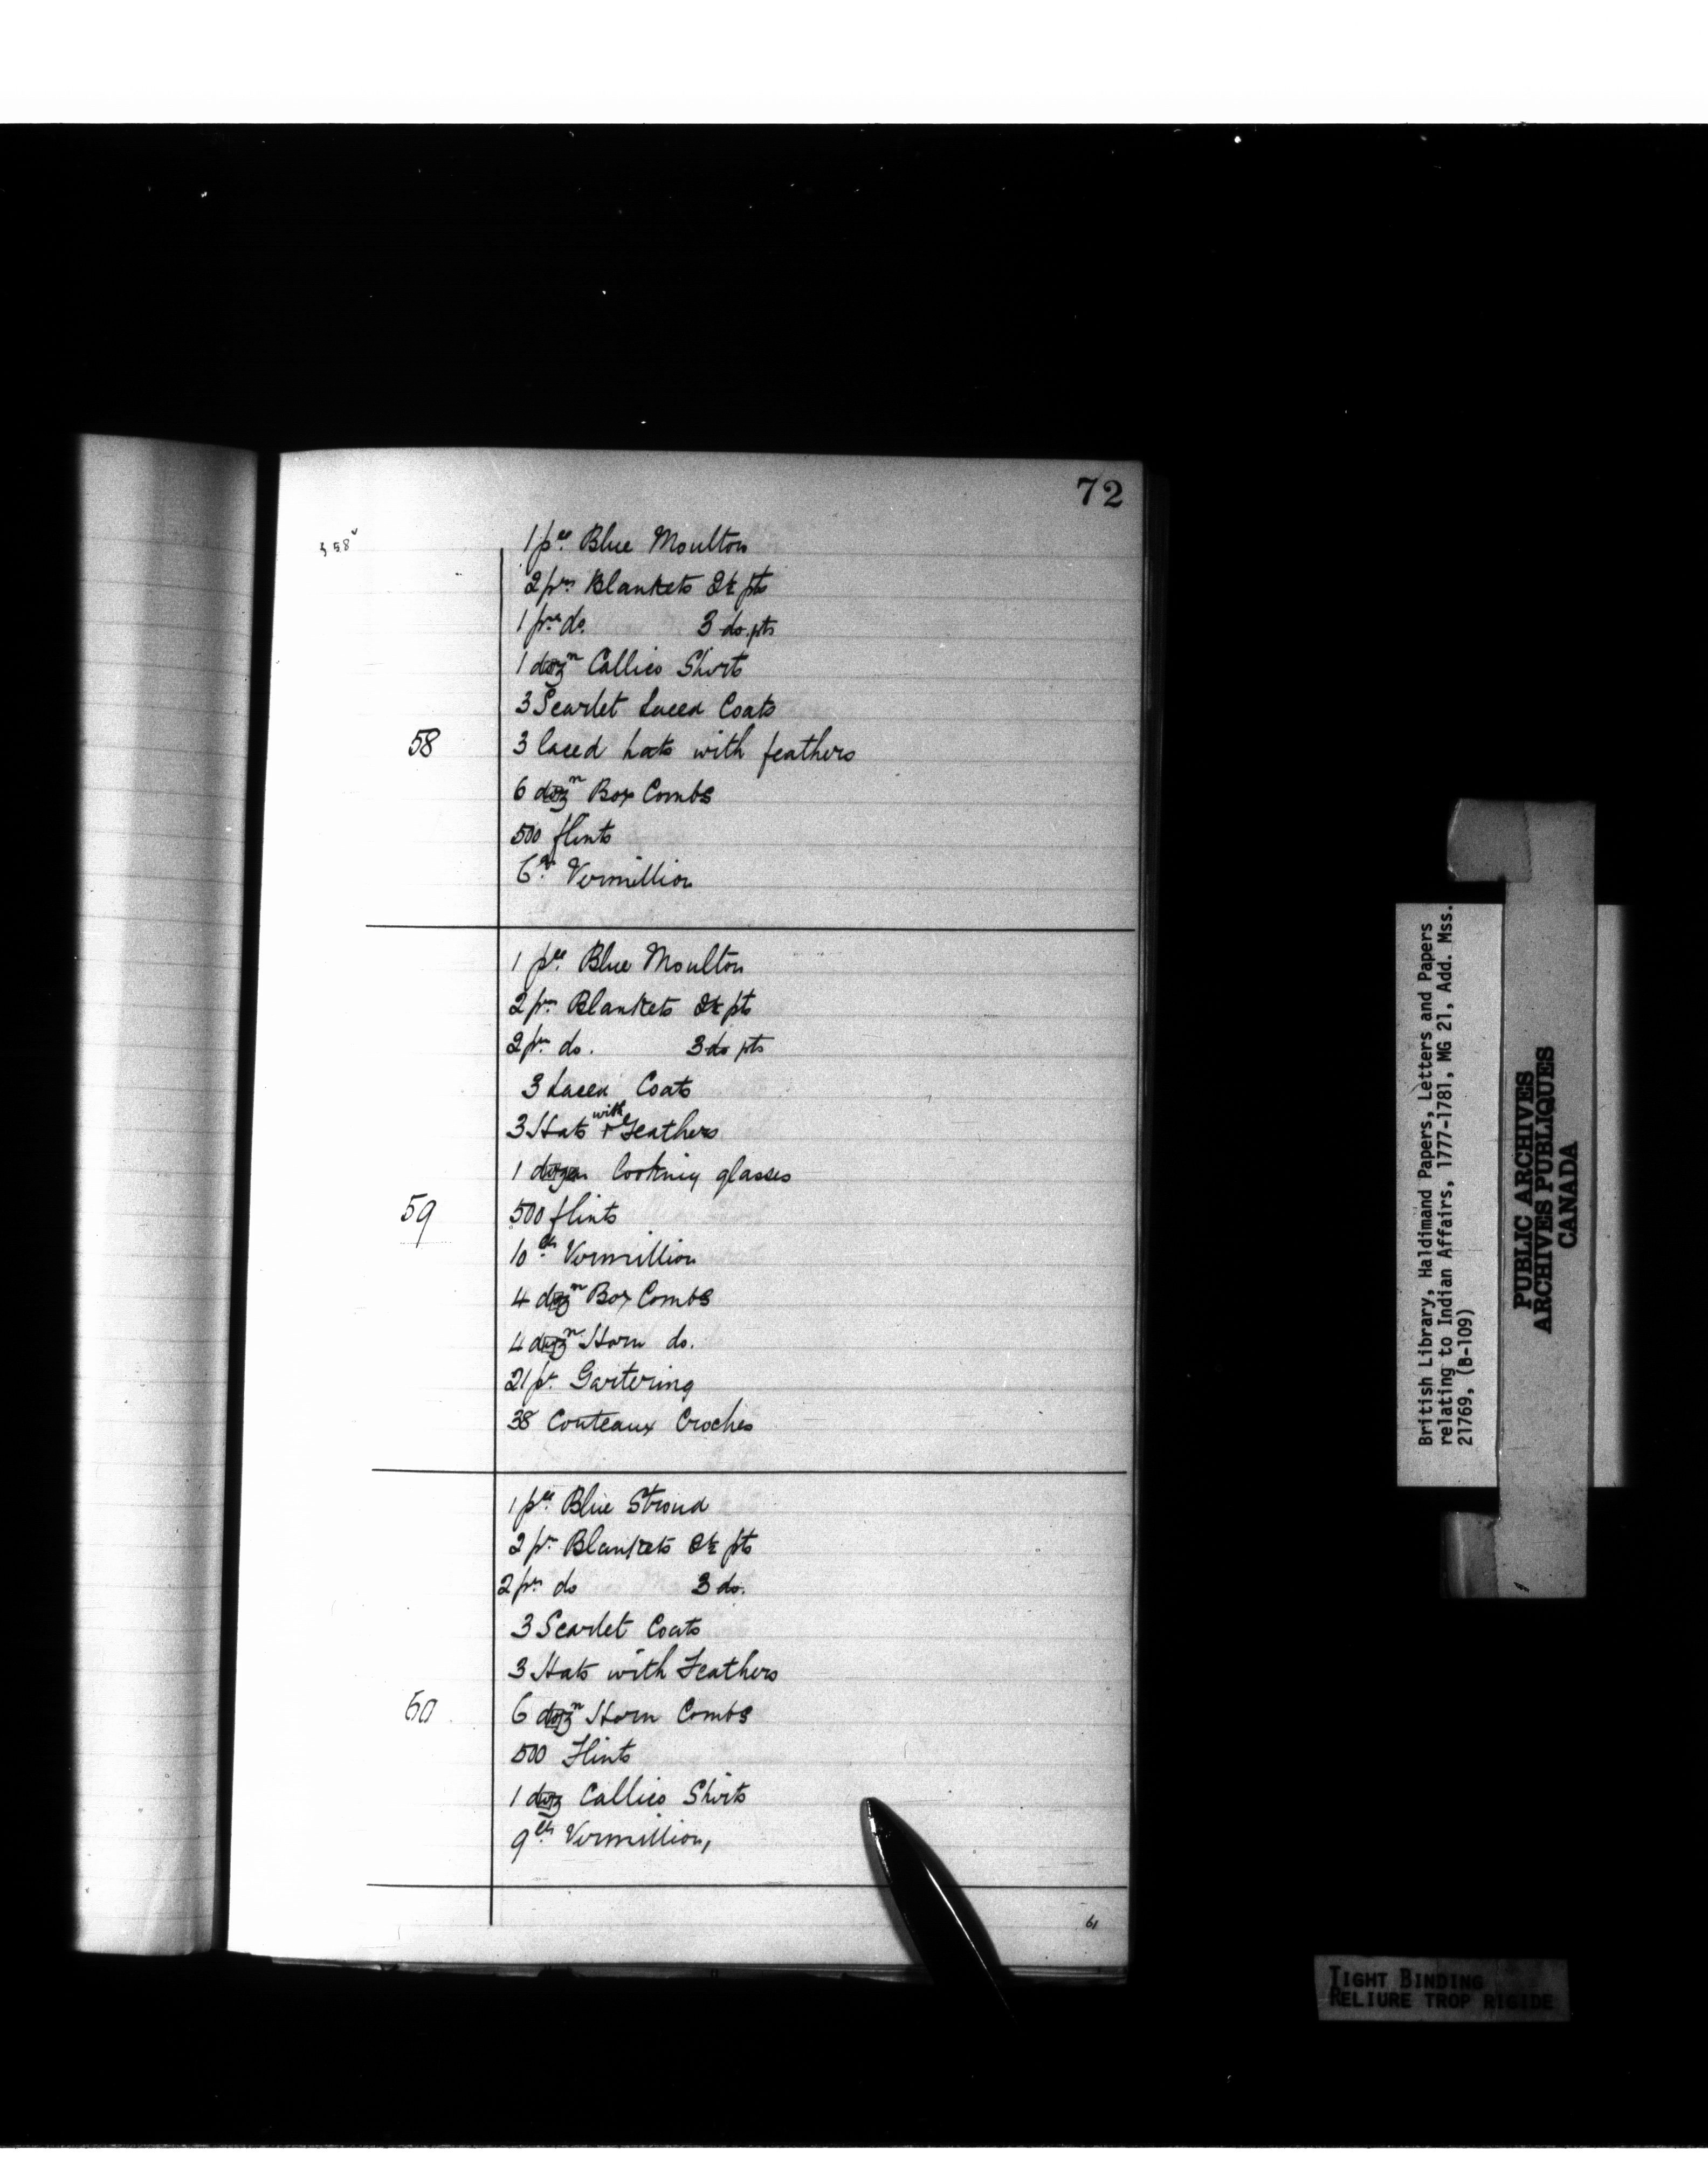 72
f 58v
1 pce. Blue Moulton
2 prs Blankets 2½ pts
1 pr. do. 3 do. pts
1 dozn Callico Shirts
3 Scarlet Laced Coats
58 3 laced hats with feathers
6 dozn Box Combs
500 flints
6lb. Vermillion
1 pce. Blue Moulton
2 prs Blankets 2½ pts
2 prs do. 3 do pts
3 Laced Coats
3 Hats with Feathers
1 dozen looking glasses
59 500 flints
10 lbs Vermillion
4 dozn Box Combs
4 dozn Horn do.
21 ps. Gartering
38 Couteaux Croches
1 pce. Blue Stroud
2 pr. Blankets 2½ pts
2 prs do 3 do.
3 Scarlet Coats
3 Hats with Feathers
60 6 dozn Horn Combs
500 Flints
1 doz Callico Shirts
9 lbs Vermillion,
61
British Library, Haldimand Papers, Letters and Papers
relating to Indian Affairs, 1777-1781, MG 21, Add. Mss.
21769, (B-109)
PUBLIC ARCHIVES
ARCHIVES PUBLIQUES
CANADA
TIGHT BINDING
RELIURE TROP RIGIDE